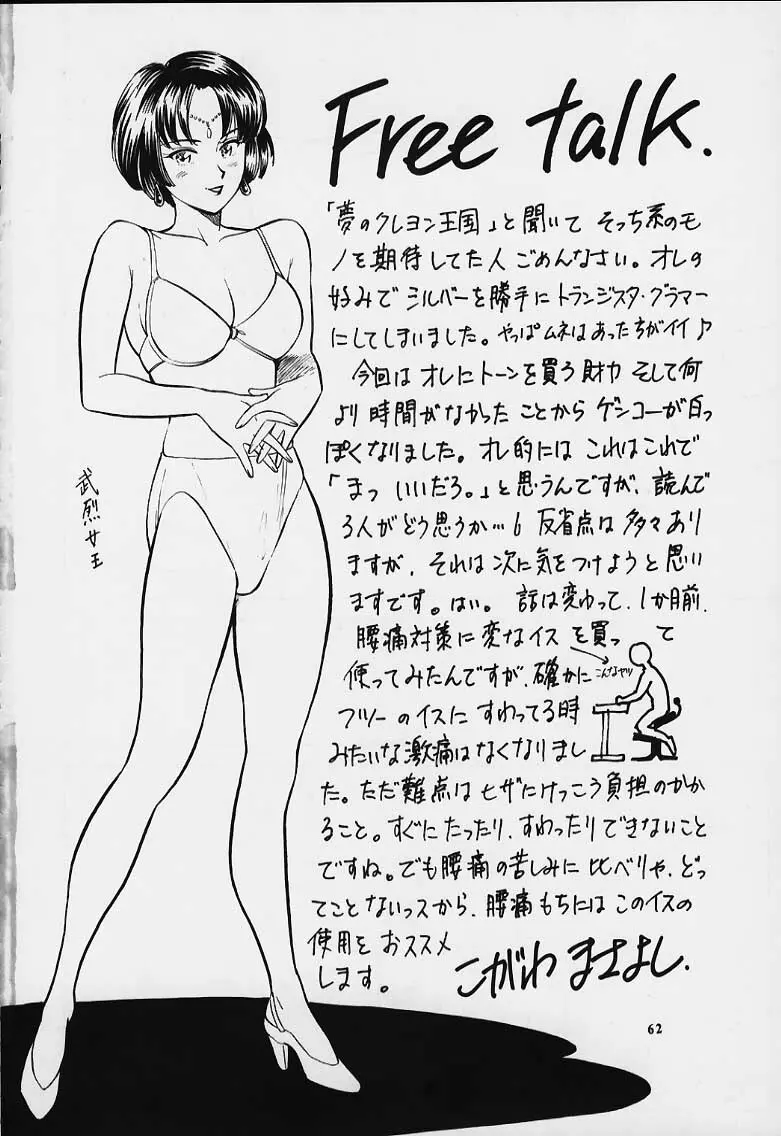 Free talk.
「夢のクレヨン王国」と聞いて そっち系のモ
ノを期待してた人 ごめんなさい。オレの
好みで シルバーを勝手に トランジスタ・グラマー
にしてしまいました。やっぱムネはあった方がイイ♪
今回は オレにトーンを買う財力 そして何
より 時間がなかった ことから ゲンコーが白っ
ぽくなりました。オレ的には これはこれで
「まっ いいだろ。」と思うんですが、読んで
る人がどう思うか…6 反省点は 多々あり
ますが、それは次に気をつけようと思い
ますです。はい。 話は変ゆって、1か月前、
腰痛対策に変なイスを買って
こんなヤツ
使ってみたんですが、確かに
フツーのイスに すわってる時
みたいな激痛はなくなりまし
た。ただ難点は ヒザにけっこう負担のかか
ること。すぐに たったり、すわったりできないこと
ですね。でも腰痛の苦しみに 比べりゃ、どっ
てことないっスから、腰痛もちには このイスの
使用を おススメ
します。
こがわ まさよし.
武烈女王
62